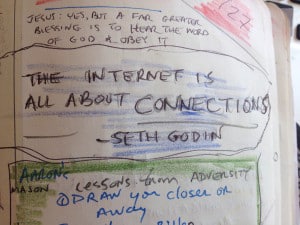 JESUS: YES, BUT A FAR GREATER
BLESSING IS TO HEAR THE WORD
OF GOD & OBEY IT
127
THE INTERNET IS
ALL ABOUT CONNECTIONS
-SETH GODIN
AARON'S
MASON
Lessons from ADVERSITY
① DRAW you closer or
Away